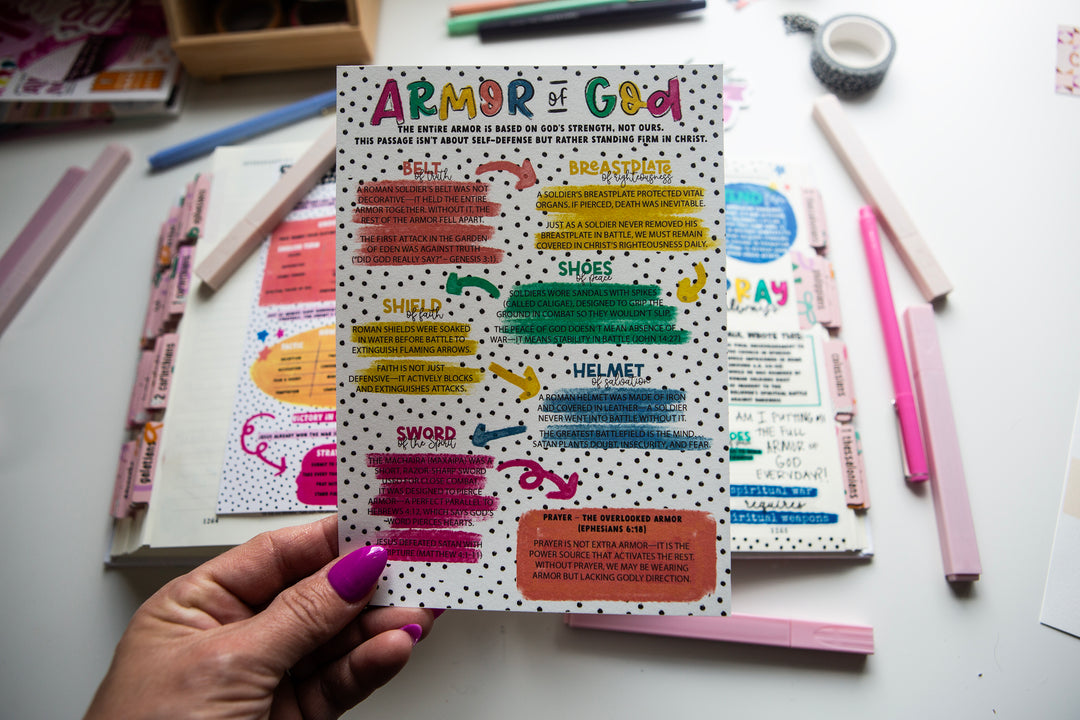 ARMOR OF GOD
THE ENTIRE ARMOR IS BASED ON GOD'S STRENGTH, NOT OURS.
THIS PASSAGE ISN'T ABOUT SELF-DEFENSE BUT RATHER STANDING FIRM IN CHRIST.
BELT
of truth
A ROMAN SOLDIER'S BELT WAS NOT
DECORATIVE—IT HELD THE ENTIRE
ARMOR TOGETHER. WITHOUT IT, THE
REST OF THE ARMOR FELL APART.
THE FIRST ATTACK IN THE GARDEN
OF EDEN WAS AGAINST TRUTH
("DID GOD REALLY SAY?" – GENESIS 3:1).
BREASTPLATE
of righteousness
A SOLDIER'S BREASTPLATE PROTECTED VITAL
ORGANS. IF PIERCED, DEATH WAS INEVITABLE.
JUST AS A SOLDIER NEVER REMOVED HIS
BREASTPLATE IN BATTLE, WE MUST REMAIN
COVERED IN CHRIST'S RIGHTEOUSNESS DAILY.
SHOES
of peace
SOLDIERS WORE SANDALS WITH SPIKES
(CALLED CALIGAE), DESIGNED TO GRIP THE
GROUND IN COMBAT SO THEY WOULDN'T SLIP.
THE PEACE OF GOD DOESN'T MEAN ABSENCE OF
WAR—IT MEANS STABILITY IN BATTLE (JOHN 14:27)
SHIELD
of faith
ROMAN SHIELDS WERE SOAKED
IN WATER BEFORE BATTLE TO
EXTINGUISH FLAMING ARROWS.
FAITH IS NOT JUST
DEFENSIVE—IT ACTIVELY BLOCKS
AND EXTINGUISHES ATTACKS.
HELMET
of salvation
A ROMAN HELMET WAS MADE OF IRON
AND COVERED IN LEATHER—A SOLDIER
NEVER WENT INTO BATTLE WITHOUT IT.
THE GREATEST BATTLEFIELD IS THE MIND.
SATAN PLANTS DOUBT, INSECURITY, AND FEAR.
SWORD
of the Spirit
THE MACHAIRA (ΜΆΧΑΙΡΑ) WAS
SHORT, RAZOR-SHARP SWORD
USED FOR CLOSE COMBAT.
IT WAS DESIGNED TO PIERCE
ARMOR—A PERFECT PARALLEL TO
HEBREWS 4:12, WHICH SAYS GOD'S
WORD PIERCES HEARTS.
JESUS DEFEATED SATAN WITH
(MATTHEW 4:1-11)
PRAYER – THE OVERLOOKED ARMOR
(EPHESIANS 6:18)
PRAYER IS NOT EXTRA ARMOR—IT IS THE
POWER SOURCE THAT ACTIVATES THE REST.
WITHOUT PRAYER, WE MAY BE WEARING
ARMOR BUT LACKING GODLY DIRECTION.
PRAY
always
AM I PUTTING ON
THE FULL
ARMOR OF
GOD
EVERYDAY?!
spiritual war
requires
spiritual weapons
VICTORY IN
galatians
2 corinthians
colossians